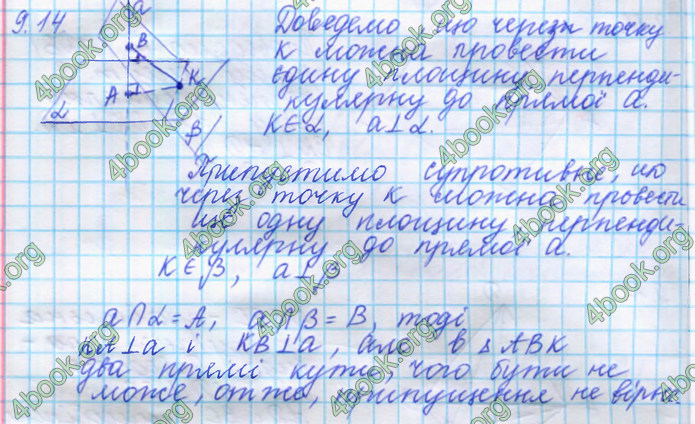 9.14.
a
B
K
A
α
β
Доведемо що через точку
К можна провести
єдину площину перпенди-
кулярну до прямої a.
K∈α, a⊥α.
Припустимо супротивне, що
через точку К можна провести
ще одну площину перпенди-
кулярну до прямої a.
K∈β, a⊥β
a∩α=A, a∩β=B, тоді
KA⊥a і KB⊥a, але в △ABK
два прямі кути, чого бути не
може, отже, припущення не вірне.
4book.org